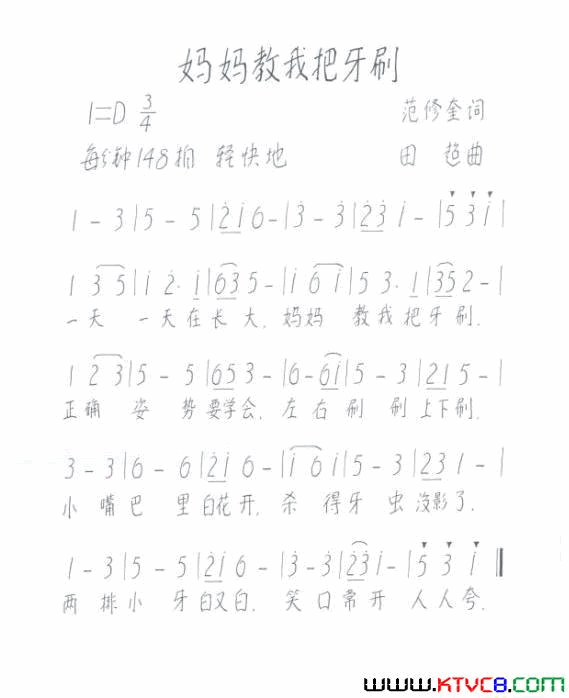 妈妈教我把牙刷
1=D 3/4
范修奎词
每分钟148拍 轻快地
田 超曲
1 - 3 | 5 - 5 | 2̇ i̇ 6 - | 3̇ - 3̇ | 2̇ 3̇ i̇ - | 5 3̇ i̇ |
1 3 5 | i̇ 2̇ · i̇ | 6 3 5 - | i̇ 6 i̇ | 5 3 · 1 | 3 5 2 - |
一天 一天在长大, 妈妈 教我把牙刷.
1 2 3 | 5 - 5 | 6 5 3 - | 6 - 6 i̇ | 5 - 3 | 2 1 5 - |
正确 姿 势要学会, 左右刷 刷上下刷.
3 - 3 | 6 - 6 | 2̇ i̇ 6 - | i̇ 6 i̇ | 5 - 3 | 2 3 1 - |
小 嘴巴 里白花开, 杀 得牙 虫没影了.
1 - 3 | 5 - 5 | 2̇ i̇ 6 - | 3̇ - 3̇ | 2̇ 3̇ i̇ - | 5 3̇ i̇ ‖
两 排小 牙白又白, 笑口常开 人人夸.
www.KTVC8.com